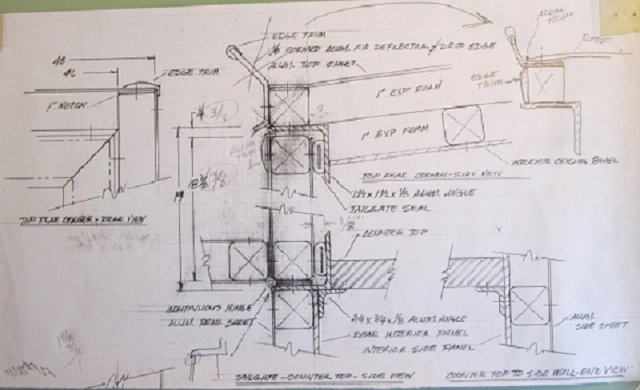 EDGE TRIM
1/8 FORMED ALUM. AIR DEFLECTOR & DRIP EDGE
ALUM. TOP SHEET
ALUM TRIM
ROOF
EDGE TRIM
EDGE TRIM
1" NOTCH
1" EXP FOAM
1" EXP FOAM
INTERIOR CEILING PANEL
TOP REAR CORNER - SIDE VIEW
1 1/2 x 1 1/2 x 1/8 ALUM. ANGLE
TAILGATE SEAL
TOP REAR CORNER & REAR VIEW
19
COUNTER TOP
CONTINUOUS HINGE
ALUM. REAR SHEET
ALUM. ANGLE
REAR INTERIOR PANEL
INTERIOR SIDE PANEL
ALUM. SIDE SHEET
TAILGATE - COUNTER TOP - SIDE VIEW
COUNTER TOP TO SIDE WALL - END VIEW